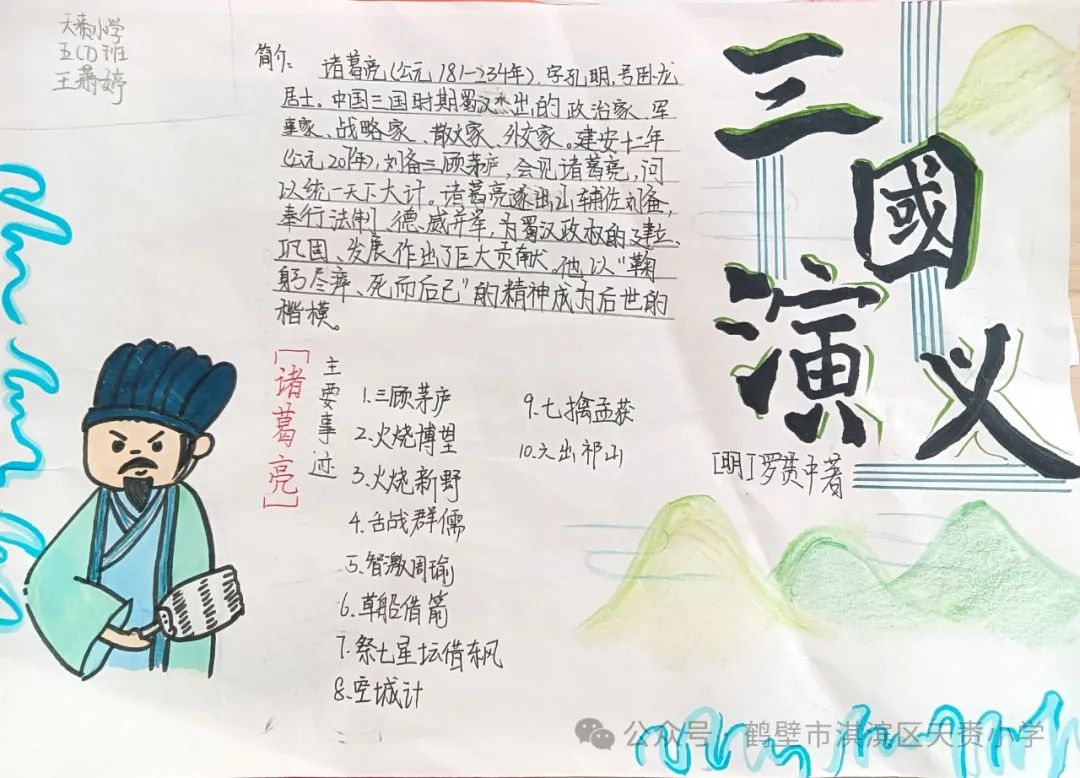 天赉小学
五(1)班
王萧婷
简介:
诸葛亮(公元181-234年),字孔明,号卧龙
居士。中国三国时期蜀汉杰出的政治家、军
事家、战略家、散文家、外交家。建安十二年
(公元207年),刘备三顾茅庐,会见诸葛亮,问
以统一天下大计。诸葛亮遂出山辅佐刘备,
奉行法制、德、威并举,为蜀汉政权的建立、
巩固、发展作出了巨大贡献。他以“鞠
躬尽瘁、死而后己”的精神成为后世的
楷模。
[诸葛亮]
主要事迹
1.三顾茅庐
2.火烧博望
3.火烧新野
4.舌战群儒
5.智激周瑜
6.草船借箭
7.祭七星坛借东风
8.空城计
9.七擒孟获
10.六出祁山
三國演义
[明]罗贯中著
公众号·鹤壁市淇滨区天赉小学